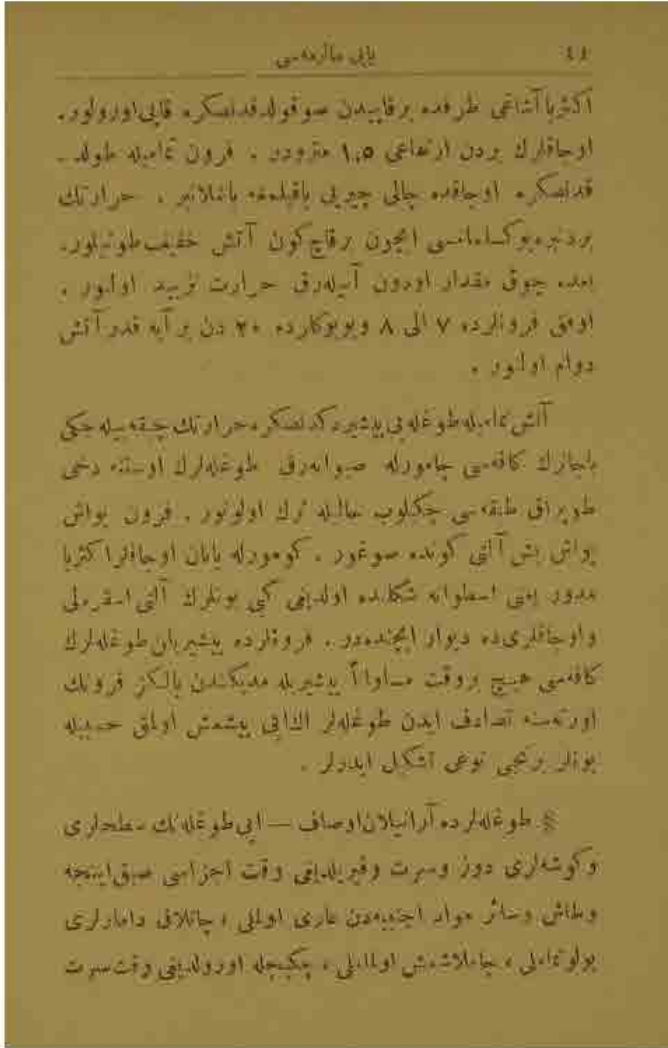 یاپی مالزمه‌سی
اكثریا آشاغی طرفده برقاپیدن صوقولدقدنصكره قاپی اورولور.
اوجاقلرك یردن ارتفاعی ۱,۵ متره‌در . فرون تمامیله طولد ـ
قدنصكره اوجاقده چالی چیرپی یاقیلمغه باشلانیر . حرارتك
بردنبره یوكسلمامسی ایچون برقاچ كون آتش خفیف طوتیلور.
بعده چوق مقدار اودون آتیله‌رق حرارت تزیید اولنور .
اوفق فرونلرده ۷ الی ۸ وبویوكلرده ۲۰ دن بر آیه قدر آتش
دوام اولنور .
آتش تمامیله طوغله‌یی پیشیردكدنصكره حرارتك چیقه‌بیله‌جكی
باجالرك كافه‌سی چامورله صیوانه‌رق طوغله‌لرك اوستنه دخی
طوپراق طبقه‌سی چكلوب حالیله ترك اولونور . فرون یواش
یواش بش آلتی كونده صوغور . كومورله یانان اوجاقلر اكثریا
مدور یعنی اسطوانه شكلنده اولدیغی كبی بونلرك آلتی اسقره‌لی
واوجاقلری‌ده دیوار ایچنده‌در . فرونلرده پیشیریلن طوغله‌لرك
كافه‌سی هیچ بروقت مساواتاً پیشیریله‌مدیكندن یالكز فرونك
اورته‌سنه تصادف ایدن طوغله‌لر اك‌ایی پیشمش اولمق حسبیله
بونلر برنجی نوعی تشكیل ایدرلر .
§ طوغله‌لرده آرانیلان اوصاف — ایی طوغله‌نك سطحلری
وكوشه‌لری دوز وسرت وقیریلدیغی وقت اجزاسی صیق اینجه
وطاش وسائر مواد اجنبیه‌دن عاری اولملی ، چاتلاق دامارلری
بولونمامالی ، جاملاشمش اولمامالی ، چكیجله اورولدیغی وقت سرت